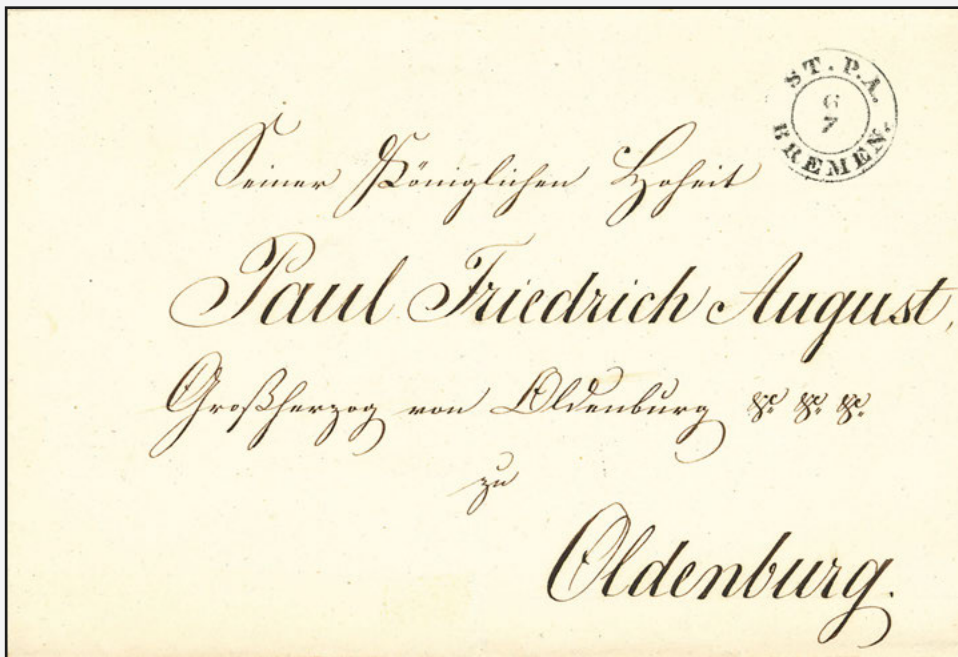 ST. P. A.
6
7
BREMEN.
Seiner Königlichen Hoheit
Paul Friedrich August,
Großherzog von Oldenburg &c. &c. &c.
zu
Oldenburg.